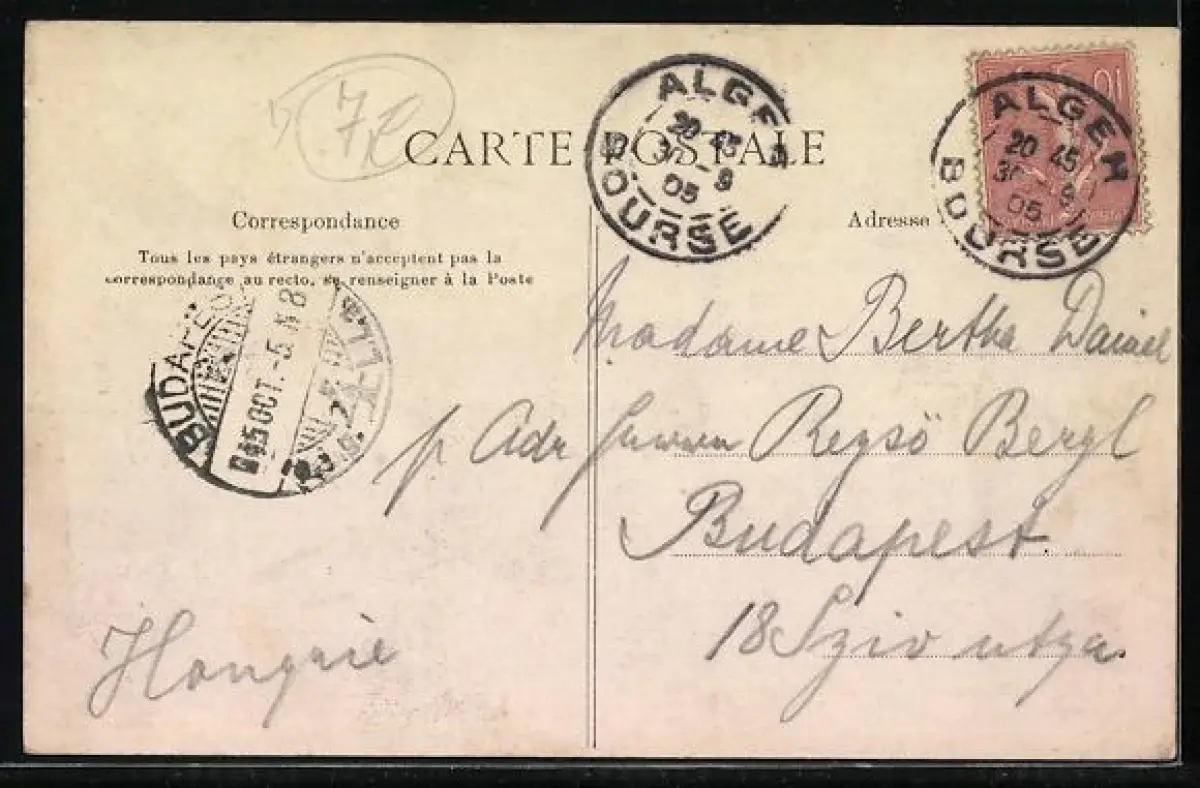 CARTE POSTALE
Correspondance
Tous les pays étrangers n'acceptent pas la
correspondance au recto, se renseigner à la Poste
Adresse
ALGER
20 45
30 - 9
05
BOURSE
ALGER
20 45
30 - 9
05
BOURSE
10
BUDAPEST
OCT. -5. N 8
Madame Bertha Daniel
p Adr Rezsö Bergl
Budapest
18 Sziv utza.
Hongrie